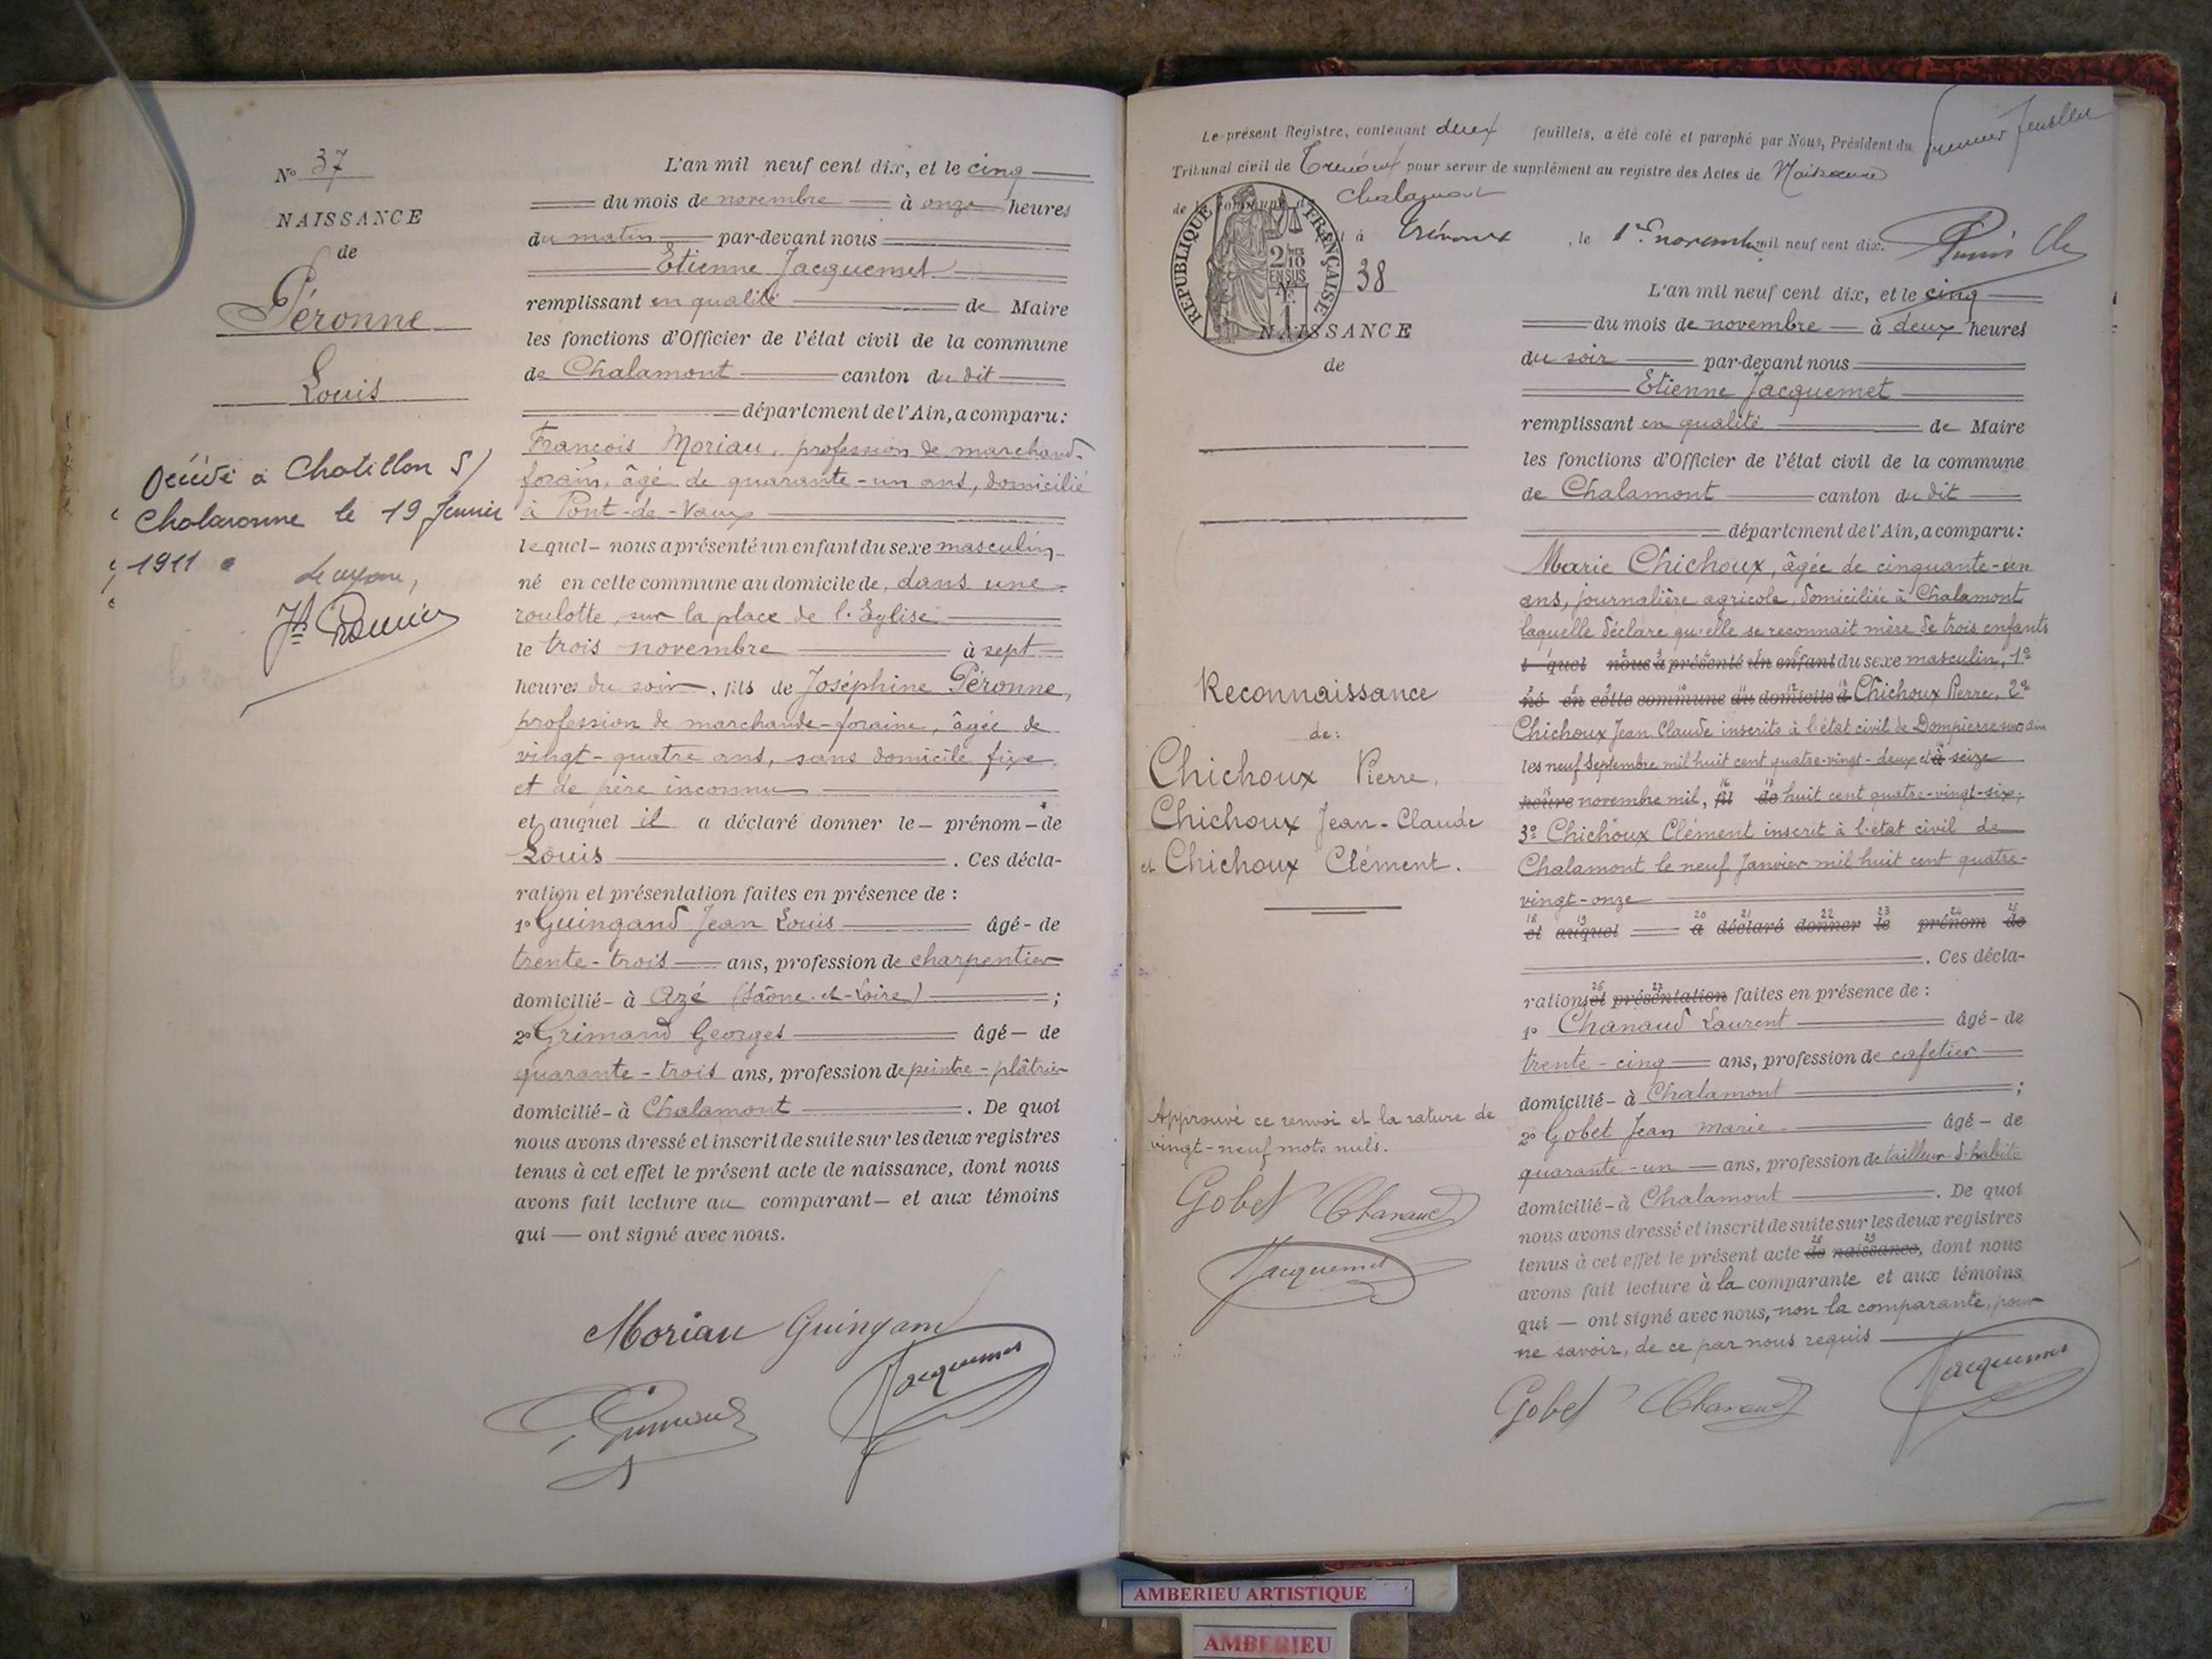 N° 37
NAISSANCE
de
Péronne
Louis
Décédé à Chatillon S/
Chalaronne le 19 Janvier
1911
L'an mil neuf cent dix, et le cinq
du mois de novembre à onze heures
du matin par-devant nous
Etienne Jacquemet
remplissant en qualité de Maire
les fonctions d'Officier de l'état civil de la commune
de Chalamont canton du dit
département de l'Ain, a comparu:
François Moriau, profession de marchand-
forain, âgé de quarante-un ans, domicilié
à Pont-de-Vaux
lequel nous a présenté un enfant du sexe masculin
né en cette commune au domicile de, dans une
roulotte, sur la place de l'Eglise
le trois novembre à sept
heures du soir, fils de Joséphine Péronne,
profession de marchande-foraine, âgée de
vingt-quatre ans, sans domicile fixe,
et de père inconnu
et auquel il a déclaré donner le prénom de
Louis. Ces décla-
ration et présentation faites en présence de :
1° Guingand Jean Louis âgé de
trente-trois ans, profession de charpentier
domicilié à Azé (Saône-et-Loire) ;
2° Grimand Georges âgé de
quarante-trois ans, profession de peintre-plâtrier
domicilié à Chalamont. De quoi
nous avons dressé et inscrit de suite sur les deux registres
tenus à cet effet le présent acte de naissance, dont nous
avons fait lecture au comparant et aux témoins
qui ont signé avec nous.
Moriau Guingand
Jacquemet
Le présent Registre, contenant deux feuillets, a été coté et paraphé par Nous, Président du
Tribunal civil de Trévoux pour servir de supplément au registre des Actes de Naissance
de la commune de Chalamont
à Trévoux, le 1er novembre mil neuf cent dix.
premier feuillet
REPUBLIQUE FRANÇAISE
2/10 EN SUS
N° 38
NAISSANCE
de
Reconnaissance
de:
Chichoux Pierre,
Chichoux Jean-Claude
et Chichoux Clément.
Approuvé ce renvoi et la rature de
vingt-neuf mots nuls.
Gobet Chanaud
Jacquemet
L'an mil neuf cent dix, et le cinq
du mois de novembre à deux heures
du soir par-devant nous
Etienne Jacquemet
remplissant en qualité de Maire
les fonctions d'Officier de l'état civil de la commune
de Chalamont canton du dit
département de l'Ain, a comparu:
Marie Chichoux, âgée de cinquante-un
ans, journalière agricole, domiciliée à Chalamont
laquelle déclare qu'elle se reconnait mère de trois enfants
l quel nous a présenté un enfant du sexe masculin, 1°
né en cette commune au domicile d Chichoux Pierre, 2°
Chichoux Jean Claude inscrits à l'état civil de Dompierre sur ain
les neuf Septembre mil huit cent quatre-vingt-deux et à seize
heure novembre mil, fil de huit cent quatre-vingt-six;
3° Chichoux Clément inscrit à l'état civil de
Chalamont le neuf Janvier mil huit cent quatre-
vingt-onze
18 19 20 21 22 23 24 25
et auquel a déclaré donner le prénom de
. Ces décla-
26 27
rations et présentation faites en présence de :
1° Chanaud Laurent âgé de
trente-cinq ans, profession de cafetier
domicilié à Chalamont ;
2° Gobet Jean Marie âgé de
quarante-un ans, profession de tailleur d'habits
domicilié à Chalamont. De quoi
nous avons dressé et inscrit de suite sur les deux registres
28 29
tenus à cet effet le présent acte de naissance, dont nous
avons fait lecture à la comparante et aux témoins
qui ont signé avec nous, non la comparante, pour
ne savoir, de ce par nous requis
Gobet Chanaud Jacquemet
AMBERIEU ARTISTIQUE
AMBERIEU